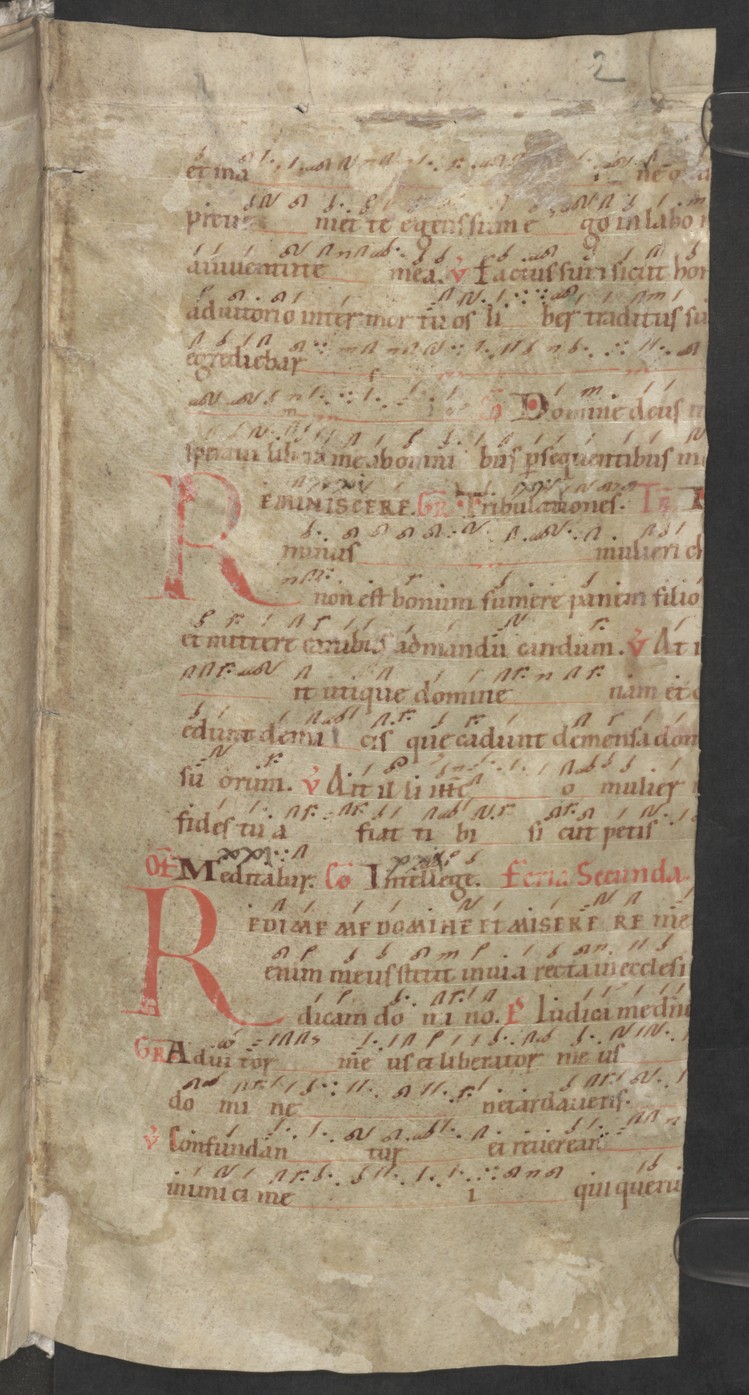 2
et ma i ne q
preces mei te egentissime go in labo
a iuuentute mea. v̓ Factus sum sicut hom
adiutorio inter mortuos li ber traditus su
egrediebar
Co Domine deus
speraui libera me ab omni bus psequentibus
REMINISCERE. GR Tribulationes. TR
minus mulieri ch
non est bonum sumere panem filio
et mittere canibus ad mandu candum. v̓ At
it utique domine nam et c
edunt de mi cis que cadunt de mensa dom
su orum. v̓ Ait il li o mulier
fides tu a fiat ti bi si cut petis
Of Meditabr. Co Intellege. Feria Secunda.
REDIME ME DOMINE ET MISERE RE me
enim meus stetit in uia recta in ecclesi
dicam do mi no. P Iudica me dne
GR Adiutor me us et liberator me us
do mi ne ne tardaueris.
v̓ Confundan tur et reuerean
inimi ci me i qui querun